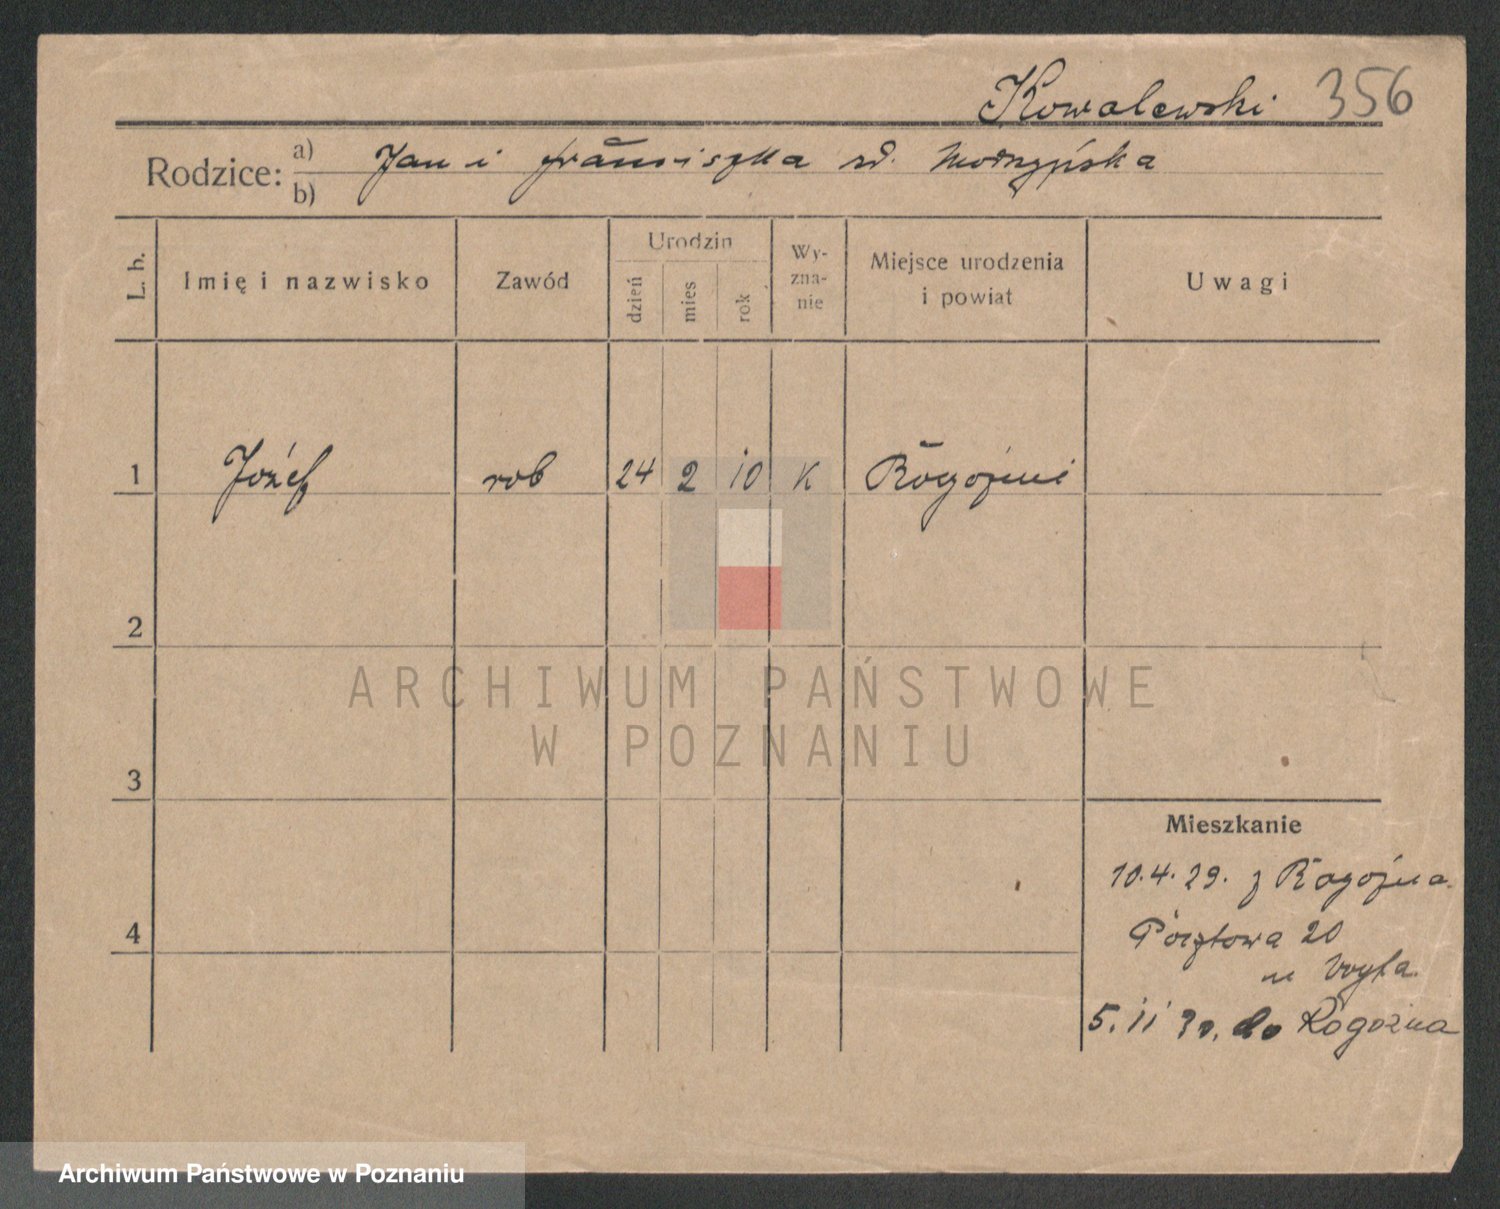 Kowalewski 356
Rodzice: a) Jan i Franciszka
b)
L. b.
Imię i nazwisko
Zawód
Urodzin
dzień
mies
rok
Wy-
zna-
nie
Miejsce urodzenia
i powiat
Uwagi
1 Józef rob 24 2 10 K
2
3
4
Mieszkanie
10.4.29. z Rogoźna
Pocztowa 20
5. 11 30. do Rogoźna
ARCHIWUM PAŃSTWOWE
W POZNANIU
Archiwum Państwowe w Poznaniu